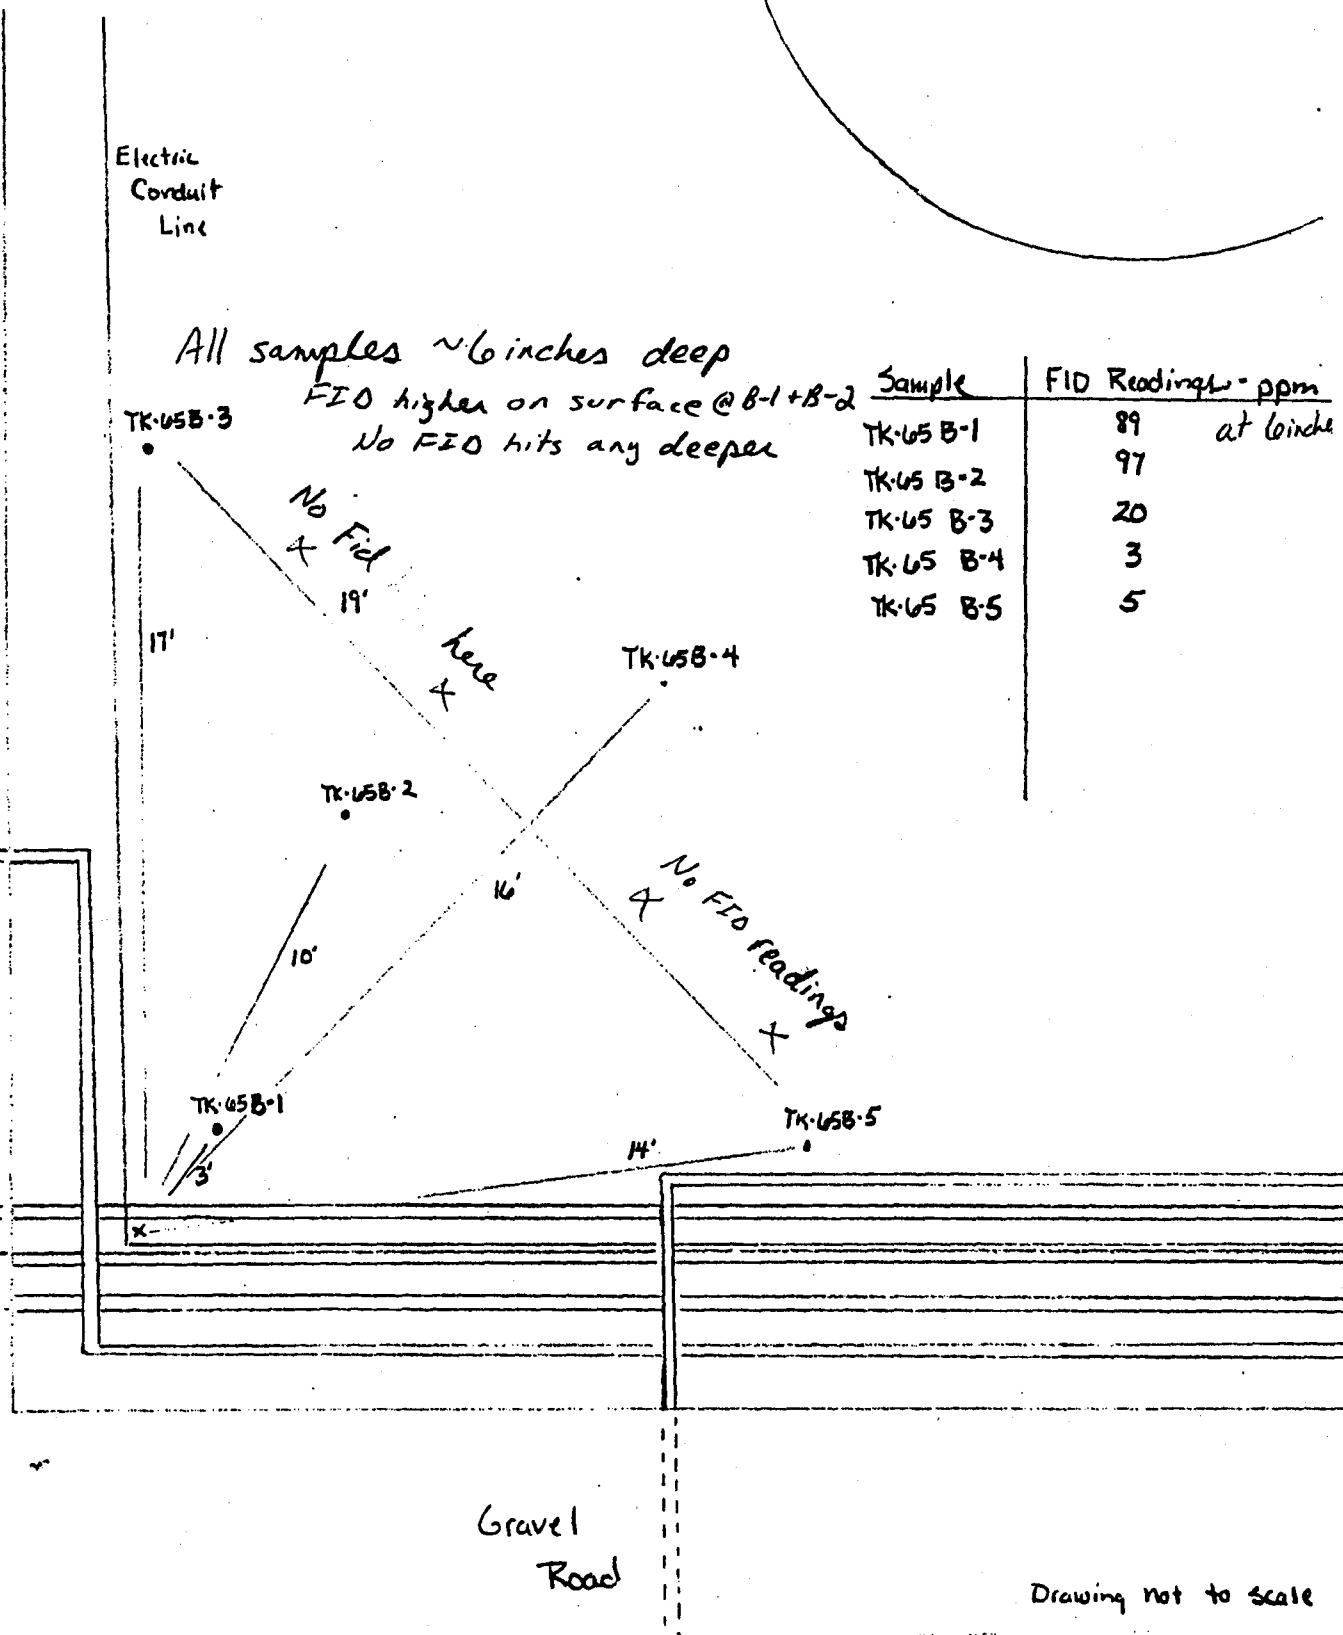 Electric
Conduit
Line
All samples ~6 inches deep
FID higher on surface @ B-1 + B-2
No FID hits any deeper
Sample FID Readings - ppm
TK-65 B-1 89 at 6inche
TK-65 B-2 97
TK-65 B-3 20
TK-65 B-4 3
TK-65 B-5 5
TK-65B-3
No Fid
x
19'
17'
here
x
TK-65B-4
TK-65B-2
16'
No FID readings
x
x
10'
TK-65B-1
3'
TK-65B-5
14'
x
Gravel
Road
Drawing not to scale